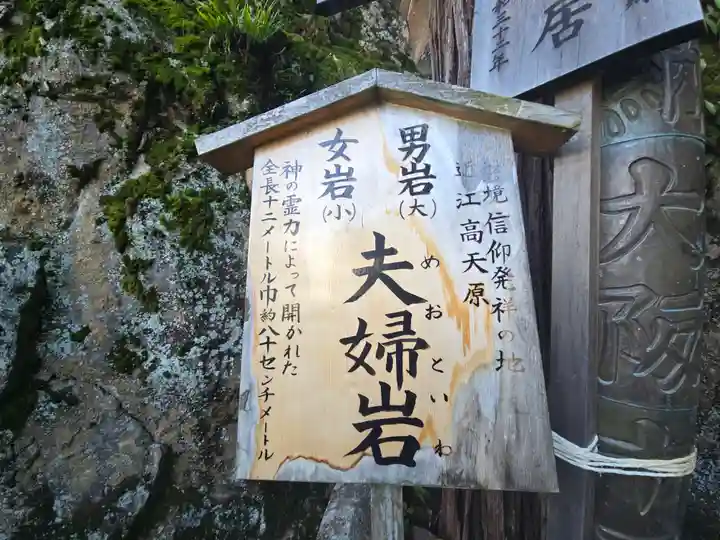 境 信仰発祥の地
近江高天原
男岩(大)
女岩(小)
夫婦岩
めおといわ
神の霊力によって開かれた
全長十二メートル巾約八十センチメートル
居
和三十三年
大阪